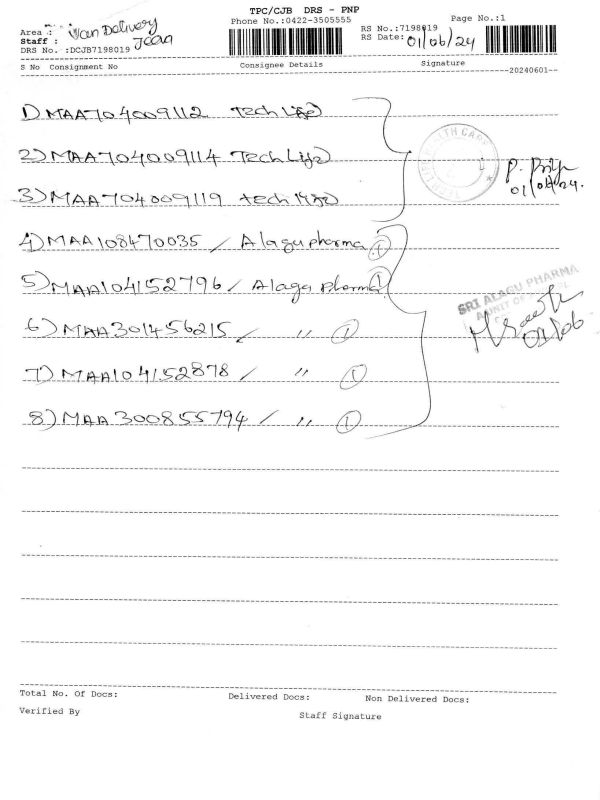 TPC/CJB DRS - PNP
Phone No.:0422-3505555
Page No.:1
Area : Van Delivery
Staff : Jeaa
DRS No. :DCJB7198019
RS No.:7198019
RS Date: 01/06/24
S No Consignment No Consignee Details Signature
--20240601--
1) MAA704009112 Tech Life
2) MAA704009114 Tech Life
3) MAA704009119 tech life
P.
01/06/24.
4) MAA108470035 / Alagu pharma 1
5) MAA104152796 / Alaga pharma 1
SRI ALAGU PHARMA
01/06
6) MAA301456215 / " 1
7) MAA104152878 / " 1
8) MAA300855794 / " 1
Total No. Of Docs: Delivered Docs: Non Delivered Docs:
Verified By Staff Signature